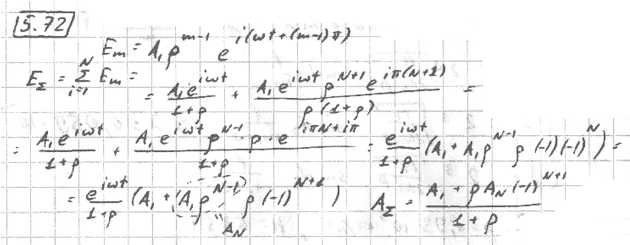 5.72
E_m = A₁ρ^{m-1} e^{i(ωt+(m-1)π)}
E_Σ = Σ_{i=1}^{N} E_m = = \frac{A₁e^{iωt}}{1+ρ} + \frac{A₁e^{iωt} ρ^{N+1} e^{iπ(N+1)}}{ρ(1+ρ)} =
= \frac{A₁e^{iωt}}{1+ρ} + \frac{A₁e^{iωt} ρ^{N-1}·ρ·e^{iπN+iπ}}{1+ρ} = \frac{e^{iωt}}{1+ρ} (A₁ + A₁ρ^{N-1} ρ(-1)(-1)^{N}) =
= \frac{e^{iωt}}{1+ρ} (A₁ + (A₁ρ^{N-1}) ρ(-1)^{N+1}) A_Σ = \frac{A₁ + ρA_N(-1)^{N+1}}{1+ρ}
A_N